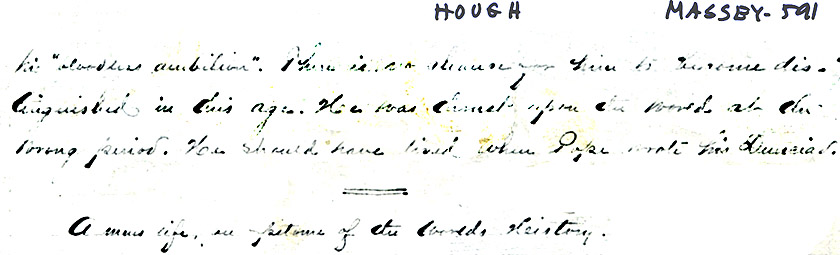 HOUGH MASSEY-591
his "bloodless ambition". There is no chance for him to become dis-
tinguished in this age. He was thrust upon the world at the
wrong period. He should have lived when Pope wrote his Dunciad.
A mans life, an epitome of the worlds History.